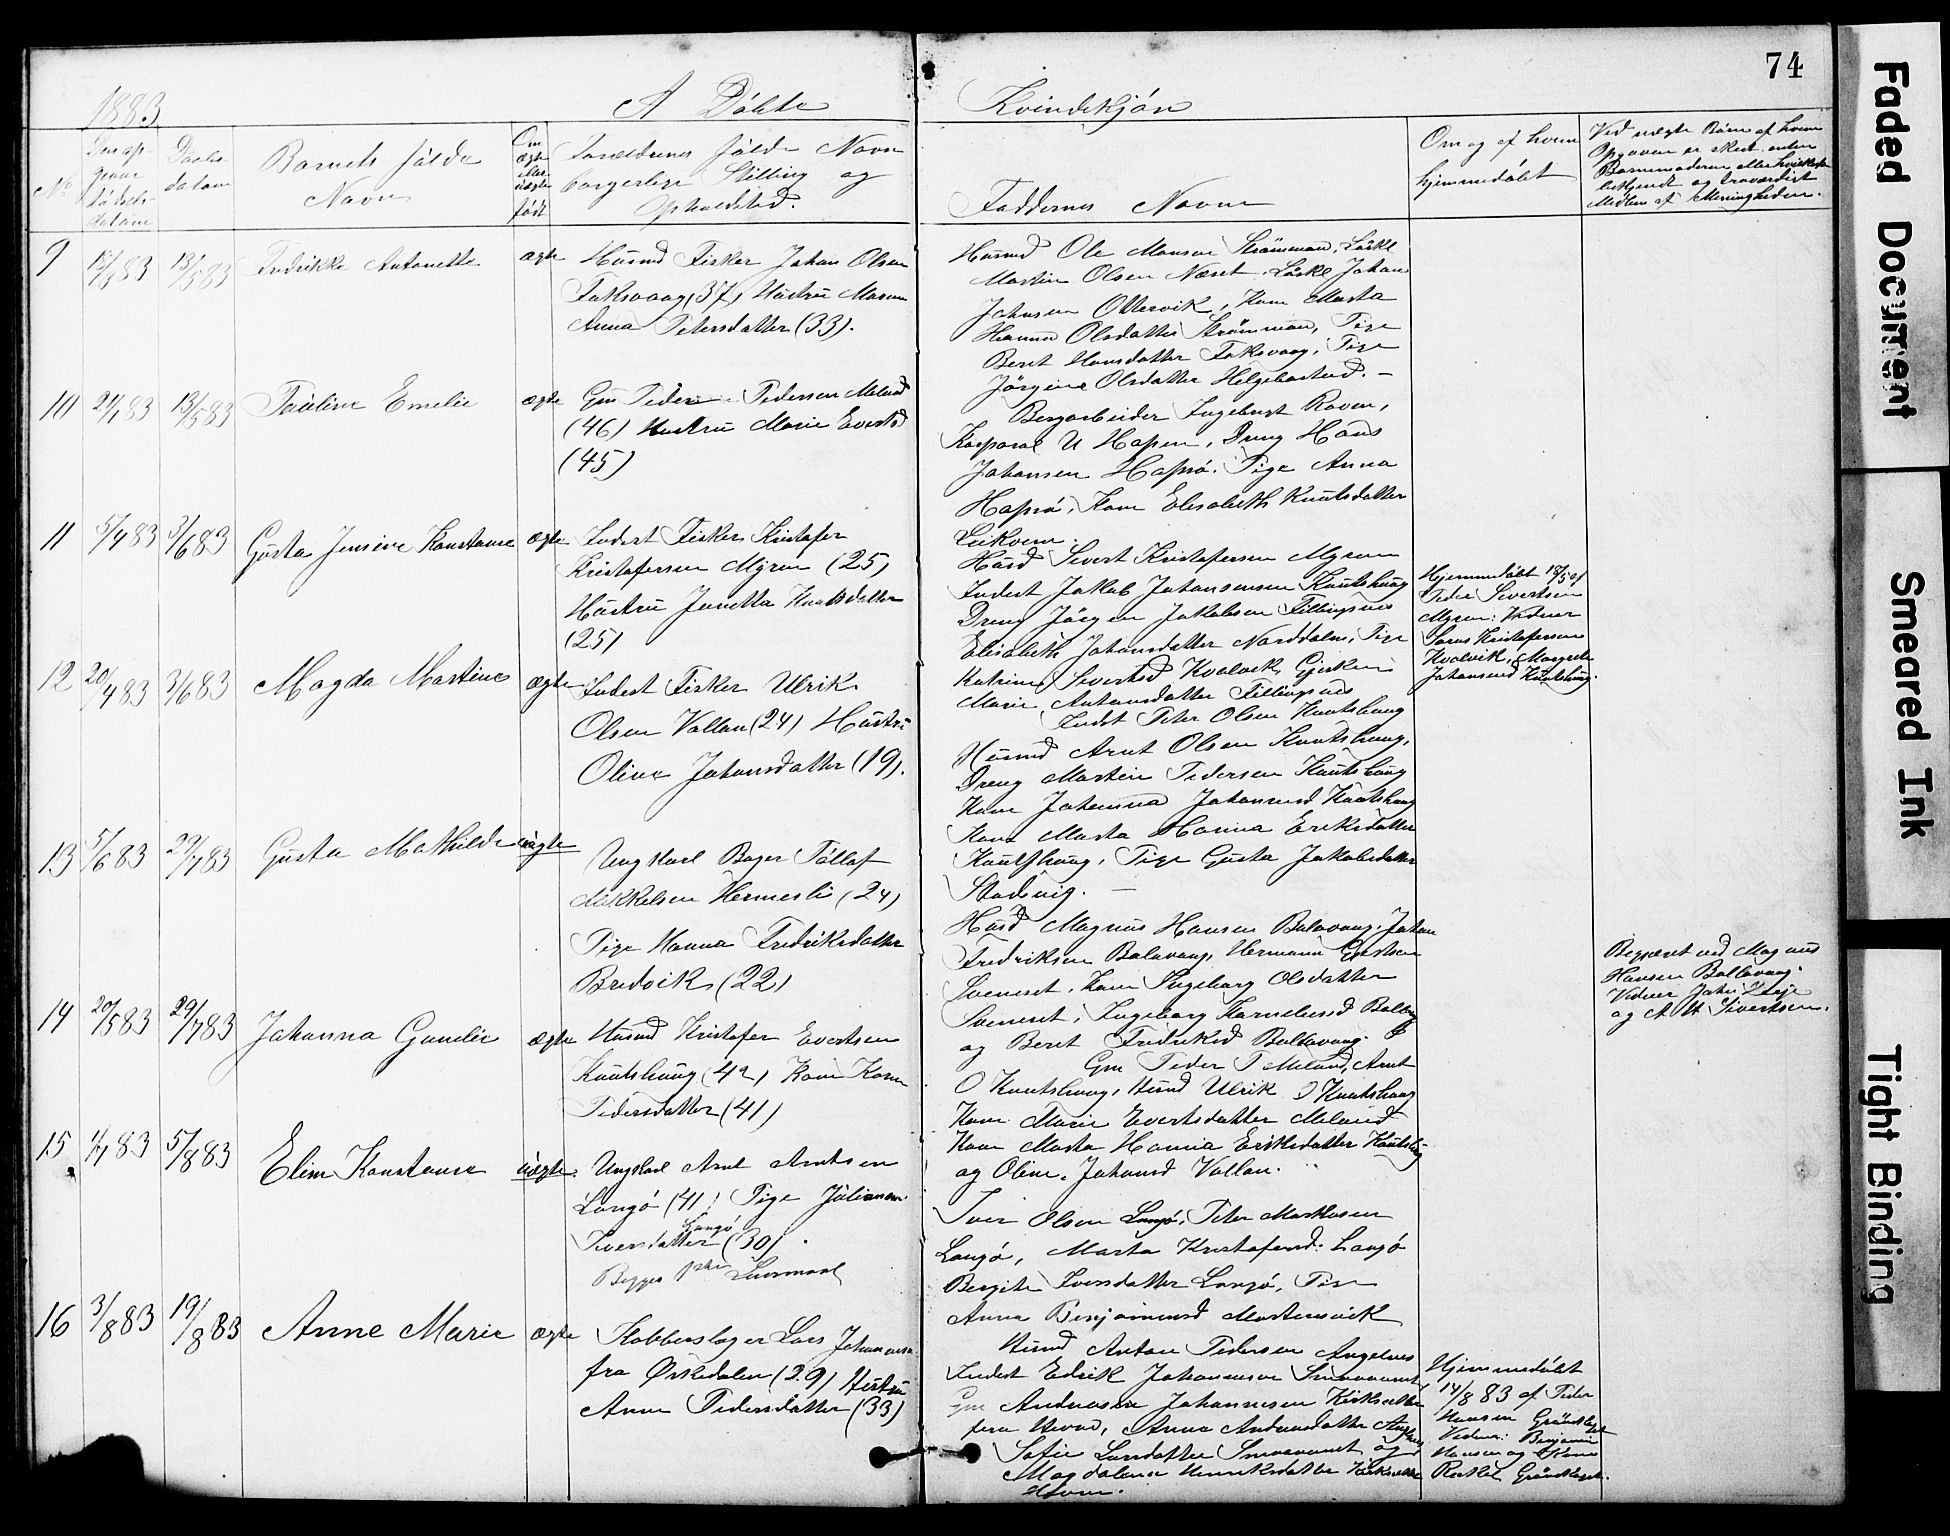 74
1883
A Döbte
Kvindekjön
No
Den opgivne fødselsdatum
Daabsdatum
Barnets fulde
Navn
Om ægte eller uægte født
Forældrenes fulde Navn
borgerlige Stilling og
Opholdsted.
Faddernes Navne
Om og af hvem
hjemmedøbt
Ved uægte Børn af hvem
Opgaven er skeet enten
Barnemoderen eller
bekjendt og troværdigt
Medlem af Menigheden.
9
13/5 83
Fredrikke Antonette
ægte
Husmd Fisker Johan Olsen
Foksvaag (37) Hustru Maren
Anna Petersdatter (33).
Husmd Ole Monsen Strömmen,
Martin Olsen Næset, Johan
Johnsen Ottervik, Kone Marta
Hanna Olsdatter Strömmen, Pige
Beret Hansdatter Foksvaag, Pige
Jörgine Olsdatter Helgebostad. -
10
21/1 83
13/5 83
Pauline Emelie
ægte
Gm Peder Pedersen Meland
(46) Hustru Marie Evertsd
(45)
Bergarbeider Ingebrigt Roven,
Korporal U Hopen, Dreng Hans
Johansen Hapsö. Pige Anna
Hapsö, Kone Elisabeth Knutsdatter
Leikvem.
11
5/4 83
3/6 83
Gusta Jensine Konstanse
ægte
Inderst Fisker Kristofer
Kristofersen Myren (25)
Hustru Jonetta Knutsdatter
(25)
Husd Sivert Kristofersen Myren
Inderst Jakob Johansensen Knutshaug
Dreng Jörgen Jakobsen Fillingsnes
Elisabeth Johansdatter Norddalen, Pige
Katrine Sivertsd Kvalvik, Gjertine
Marie Antonsdatter Fillingsnes
Hjemmedöbt 18/5 af
Peder Sivertsen
Myren: Vidner
Lars Kristofersen
Kvalvik, Margrete
Johansend Knutshaug.
12
20/4 83
3/6 83
Magda Martine
ægte
Inderst Fisker Ulrik
Olsen Vollan (24) Hustru
Oline Johansdatter (19).
Indst Peter Olsen Knutshaug
Husmd Arnt Olsen Knutshaug,
Dreng Martin Pedersen Knutshaug
Kone Johanna Johannesd Knutshaug
Kone Marta Hanna Eriksdatter
Knutshaug, Pige Gusta Jakobsdatter
Stadsvig. -
13
5/6 83
29/7 83
Gusta Mathilde
uægte
Ungkarl Bager Tollef
Mikkelsen Hermesli (24)
Pige Hanna Fredriksdatter
Bredvik (22)
Husd Magnus Hansen Balsvaag, Johan
Fredriksen Balsvaag, Hermann Gjertsen
Sveneset, Kone Ingeborg Olsdatter
Sveneset, Ingeborg Kornelusd
og Beret Fredriksd Balsvaag.
Begjæret ved Magnus
Hansen Balsvaag.
Vidner
og A H Sivertsen.
14
20/5 83
29/7 83
Johanna Gunelie
ægte
Husmd Kristofer Evertsen
Knutshaug (42) Kone Karen
Pedersdatter (41)
Gm Peder P Meland, Arnt
O Knutshaug, Husmd Ulrik O Knutshaug
Kone Marie Evertsdatter Meland
Kone Marta Hanna Eriksdatter Knutshaug
og Oline Johansd Vollan.
15
4/7 83
5/8 83
Elen Konstanse
uægte
Ungkarl Arnt Arntsen
Langö (41) Pige Julianna
Iversdatter Langö (30).
Begges
Iver Olsen Langö, Peter Markussen
Langö, Marta Kristofersd: Langö
Bergite Iversdatter Langö, Pige
Anna Benjaminsd Mortensvik
16
3/8 83
19/8 83
Anne Marie
ægte
Kobberslager Lars Johannesen
fra Ørskedalen (29) Hustru
Anne Pedersdatter (33)
Husmd Anton Pedersen Angelnes
Inderst Edrik Johannesen
Gm Andreasen Johannesen
fra Hevne, Anna Andreasdatter
Sofie Larsdatter og
Magdalena Henriksdatter
Hjemmedöbt
14/8 83 af Peder
Hansen
Vidner: Benjamin
Hansen og
Faded Document
Smeared Ink
Tight Binding